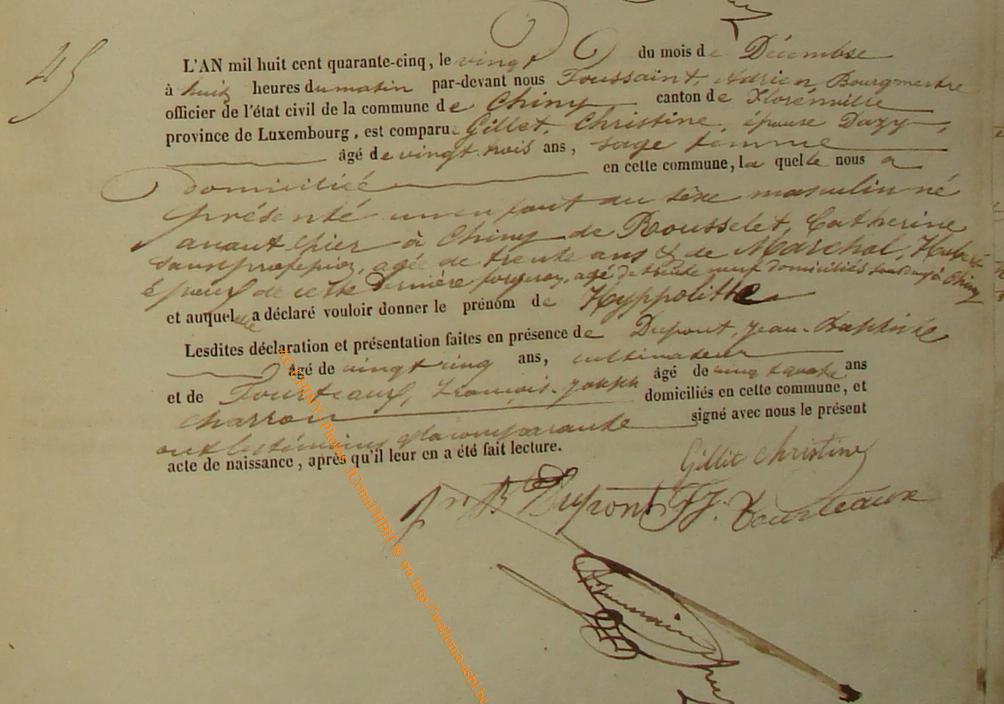 45
L'AN mil huit cent quarante-cinq, le vingt du mois de Décembre
à huit heures du matin par-devant nous Toussaint, Adrien Bourgmestre
officier de l'état civil de la commune de Chiny canton de Florenville
province de Luxembourg, est comparue Gillet, Christine, épouse Dazy,
âgé de vingt trois ans, sage femme
domiciliée en cette commune, la quelle nous a
présenté un enfant du sèxe masculin né
avant hier à Chiny de Rousselet, Catherine
sans profession, agée de trente ans & de Marchal, Hubert
époux de cette dernière forgeron, agé de trente neuf domiciliés à Chiny
et auquel elle a déclaré vouloir donner le prénom de Hyppolitte
Lesdites déclaration et présentation faites en présence de Dupont, Jean-Baptiste
âgé de vingt cinq ans, cultivateur
et de Tourteaux, François-Joseph âgé de cinquante ans
charron domiciliés en cette commune, et
ont les témoins et la comparante signé avec nous le présent
acte de naissance, après qu'il leur en a été fait lecture.
Gillit Christine
Dupont F.J. Tourteaux